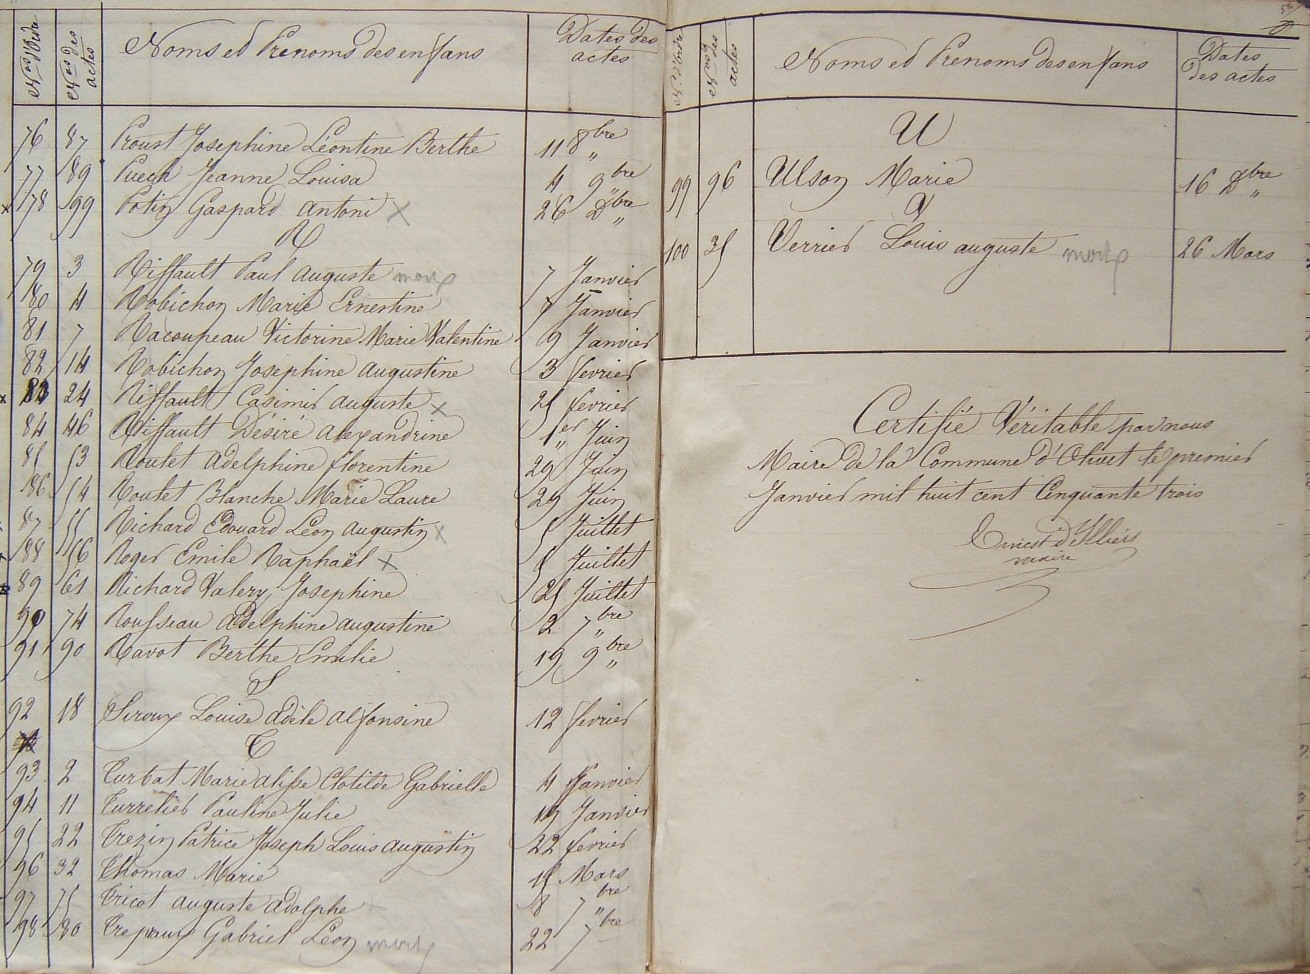 Nos d'Ordre Nos des actes Noms et Prenoms des enfans Dates des actes
76 87 Proust Josephine Léontine Berthe 11 8bre
77 89 Puech Jeanne Louisa 4 9bre
x 78 99 Potin Gaspard Antoni x 26 Dbre
R
79 3 Riffault Paul auguste mort 7 Janvier
80 4 Robichon Marie Ernestine 7 Janvier
81 7 Racoupeau Victorine Marie Valentine 9 Janvier
82 14 Robichon Josephine augustine 3 fevrier
x 83 24 Riffault Casimir auguste x 25 fevrier
84 46 Riffault Désiré alexandrine 1er Juin
85 53 Roulet adelphine florentine 29 Juin
86 54 Roulet Blanche Marie Laure 29 Juin
87 55 Richard Edouard Léon augustin x 5 Juillet
88 56 Roger Emile Raphaël x 5 Juillet
89 61 Richard Valery Josephine 25 Juillet
90 74 Rousseau adelphine augustine 2 7bre
91 90 Ravot Berthe Emilie 19 9bre
S
92 18 Siroux Louise adèle alfonsine 12 fevrier
T
93 2 Turbat Marie alisse Clotilde Gabrielle 4 Janvier
94 11 Turrelier Pauline Julie 19 Janvier
95 22 Trezin Patrice Joseph Louis augustin 22 fevrier
96 32 Thomas Marie 15 Mars
97 75 Tricot auguste adolphe 8 7bre
98 80 Trepaux Gabriel Léon mort 22 7bre
Nos d'Ordre Nos des actes Noms et Prenoms des enfans Dates des actes
U
99 96 Ulson Marie 16 Dbre
V
100 35 Verrier Louis auguste mort 26 Mars
Certifié Véritable par nous
Maire de la Commune d'Olivet le premier
Janvier mil huit cent Cinquante trois
Ernest d'Illiers
maire